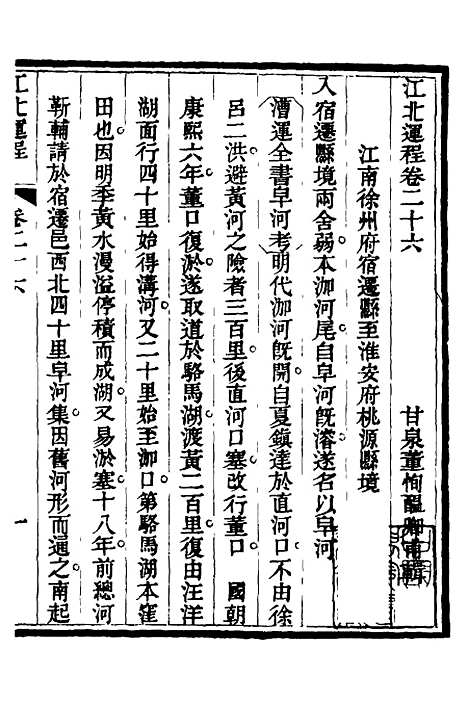 江北運程卷二十六
甘泉董恂醞卿甫輯
江南徐州府宿遷縣至淮安府桃源縣境
入宿遷縣境兩舍弱本泇河尾自皁河旣濬遂名以皁河
漕運全書皁河考明代泇河旣開自夏鎮達於直河口不由徐
呂二洪避黃河之險者三百里後直河口塞改行董口　國朝
康熙六年董口復淤遂取道於駱馬湖渡黃二百里復由汪洋
湖面行四十里始得溝河又二十里始至泇口第駱馬湖本窪
田也因明季黃水漫溢停積而成湖又易淤塞十八年前總河
靳輔請於宿遷邑西北四十里皁河集因舊河形而通之南起
江北運程
卷二十六
一